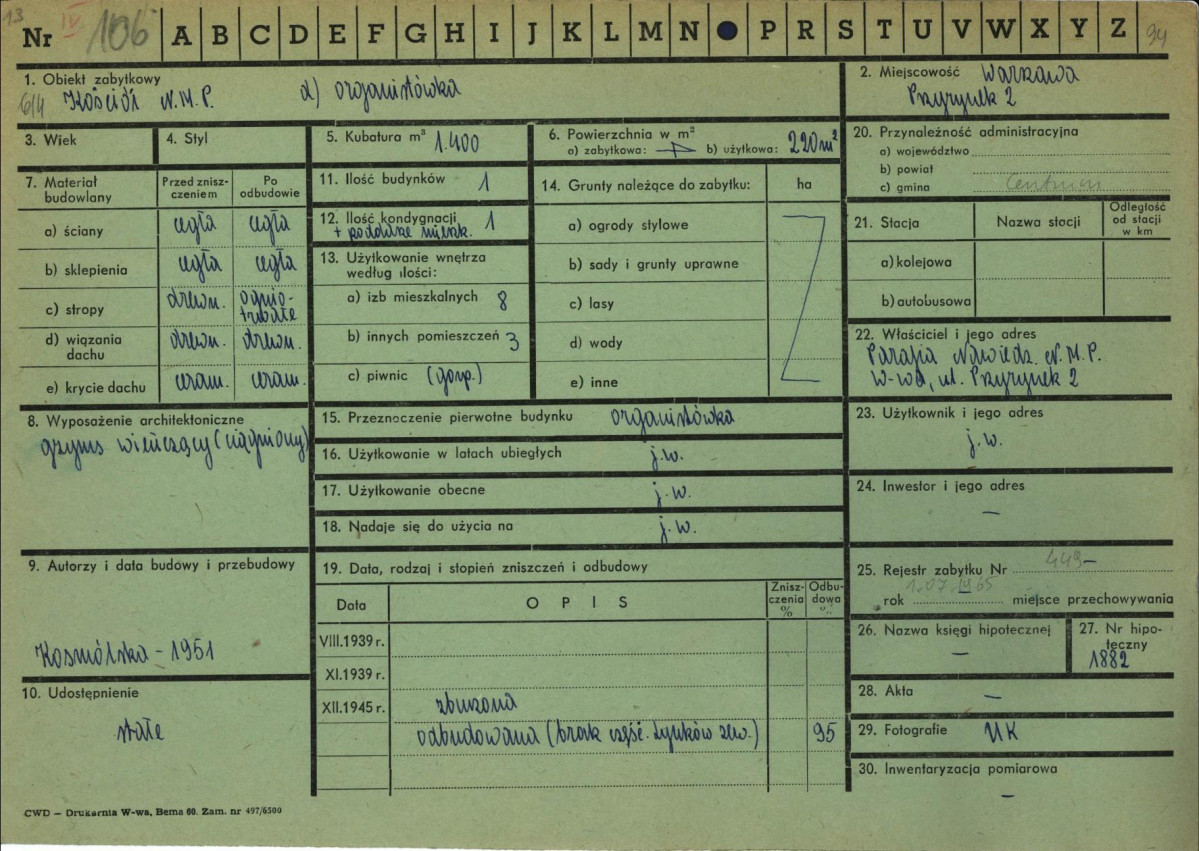 13 IV
Nr 106 A B C D E F G H I J K L M N P R S T U V W X Y Z 94
1. Obiekt zabytkowy
6/4 Kościół N.M.P. d) organistówka
2. Miejscowość Warszawa
Przyrynek 2
3. Wiek
4. Styl
5. Kubatura m³ 1.400
6. Powierzchnia w m²
a) zabytkowa: b) użytkowa: 220 m²
7. Materiał budowlany
Przed zniszczeniem
Po odbudowie
a) ściany cegła cegła
b) sklepienia cegła cegła
c) stropy drewn. ognio-trwałe
d) wiązania dachu drewn. drewn.
e) krycie dachu ceram. ceram.
8. Wyposażenie architektoniczne
gzyms wieńczący (ciągniony)
9. Autorzy i data budowy i przebudowy
Kosmólska - 1951
10. Udostępnienie
stałe
11. Ilość budynków 1
12. Ilość kondygnacji 1
+ poddasze mieszk.
13. Użytkowanie wnętrza według ilości:
a) izb mieszkalnych 8
b) innych pomieszczeń 3
c) piwnic (gosp.)
14. Grunty należące do zabytku: ha
a) ogrody stylowe
b) sady i grunty uprawne
c) lasy
d) wody
e) inne
15. Przeznaczenie pierwotne budynku organistówka
16. Użytkowanie w latach ubiegłych j.w.
17. Użytkowanie obecne j.w.
18. Nadaje się do użycia na j.w.
19. Data, rodzaj i stopień zniszczeń i odbudowy
Data OPIS Zniszczenia % Odbudowa %
VIII.1939 r.
XI.1939 r.
XII.1945 r. zburzona
odbudowana (brak część. tynków zew.) 95
20. Przynależność administracyjna
a) województwo
b) powiat
c) gmina Centrum
21. Stacja Nazwa stacji Odległość od stacji w km
a) kolejowa
b) autobusowa
22. Właściciel i jego adres
Parafia Nawiedz. N.M.P.
W-wa, ul. Przyrynek 2
23. Użytkownik i jego adres
j.w.
24. Inwestor i jego adres
–
25. Rejestr zabytku Nr 449-
rok 1.07.1965 miejsce przechowywania
26. Nazwa księgi hipotecznej
–
27. Nr hipoteczny
1882
28. Akta –
29. Fotografie UK
30. Inwentaryzacja pomiarowa
–
CWD — Drukarnia W-wa, Bema 60. Zam. nr 497/6500